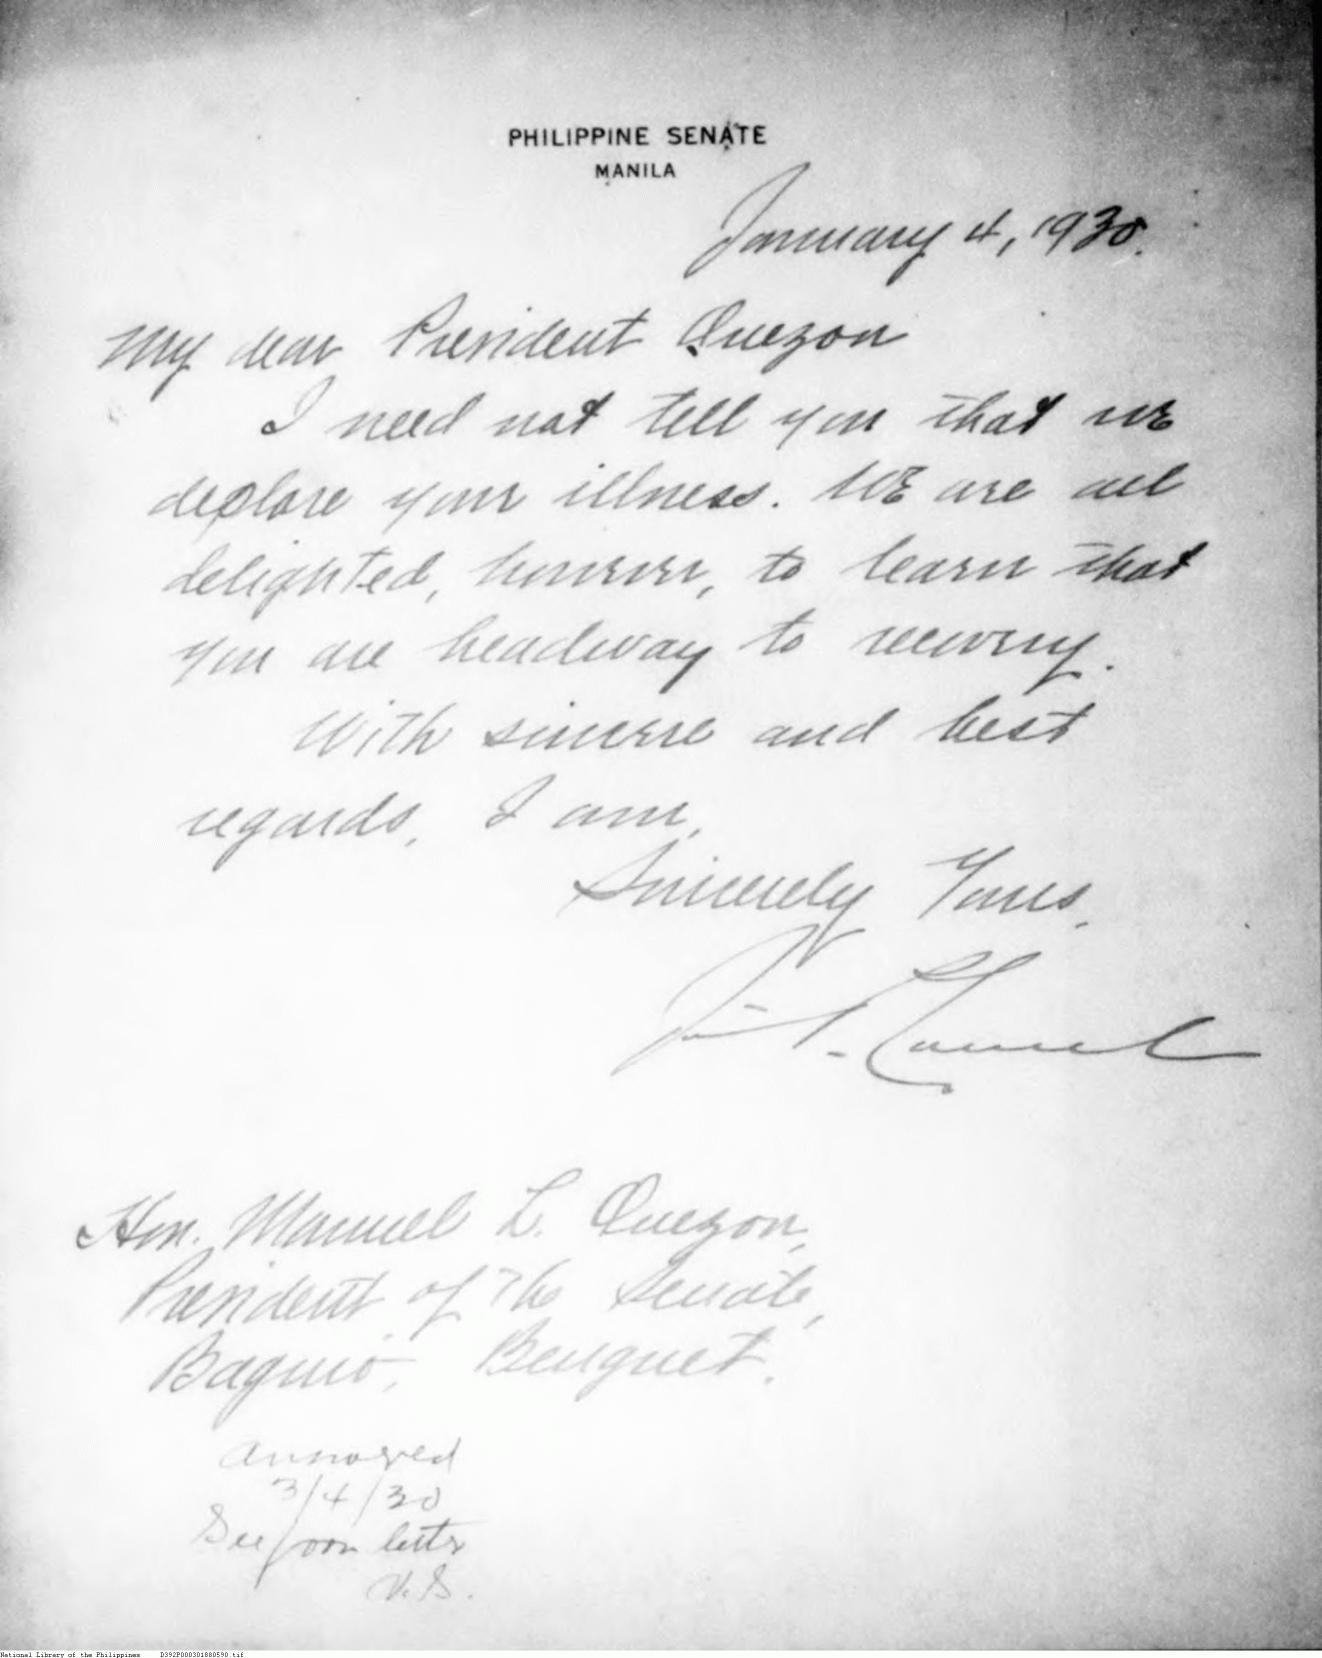 PHILIPPINE SENATE
MANILA
January 4, 1930.
My dear President Quezon
I need not tell you that we
deplore your illness. We are all
delighted, however, to learn that
you are headway to recovery.
With sincere and best
regards, I am,
Sincerely Yours,
Hon. Manuel L. Quezon,
President of the Senate,
Baguio, Benguet.
3/4/30
See letter
V.S.
National Library of the Philippines D392P000301880590.tif